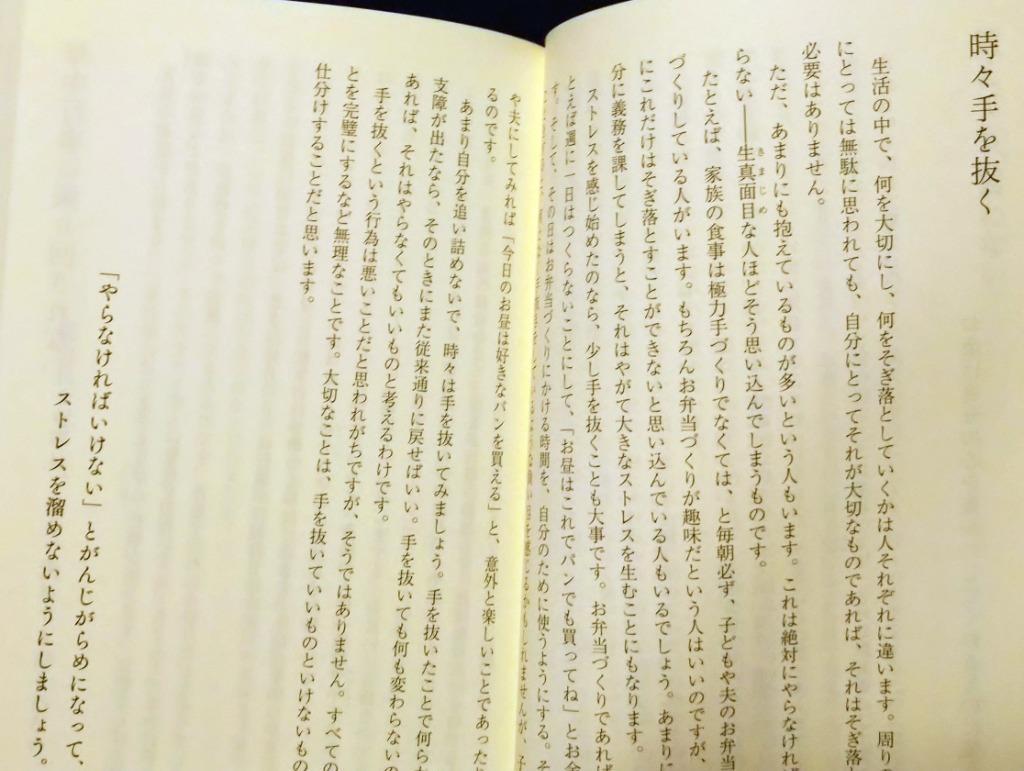 時々手を抜く
生活の中で、何を大切にし、何をそぎ落としていくかは人それぞれに違います。周り
にとっては無駄に思われても、自分にとってそれが大切なものであれば、それはそぎ落と
必要はありません。
ただ、あまりにも抱えているものが多いという人もいます。これは絶対にやらなけれ
らない――生真面目な人ほどそう思い込んでしまうものです。
きまじめ
たとえば、家族の食事は極力手づくりでなくては、と毎朝必ず、子どもや夫のお弁当
づくりしている人がいます。もちろんお弁当づくりが趣味だという人はいいのですが、
にこれだけはそぎ落とすことができないと思い込んでいる人もいるでしょう。あまりに
分に義務を課してしまうと、それはやがて大きなストレスを生むことにもなります。
ストレスを感じ始めたのなら、少し手を抜くことも大事です。お弁当づくりであれば
とえば週に一日はつくらないことにして、「お昼はこれでパンでも買ってね」とお金
す。そして、その日はお弁当づくりにかける時間を、自分のために使うようにする。そ
や夫にしてみれば「今日のお昼は好きなパンを買える」と、意外と楽しいことであった
るのです。
あまり自分を追い詰めないで、時々は手を抜いてみましょう。手を抜いたことで何ら
支障が出たなら、そのときにまた従来通りに戻せばいい。手を抜いても何も変わらないの
あれば、それはやらなくてもいいものと考えるわけです。
手を抜くという行為は悪いことだと思われがちですが、そうではありません。すべての
とを完璧にするなど無理なことです。大切なことは、手を抜いていいものといけないもの
仕分けすることだと思います。
「やらなければいけない」とがんじがらめになって、
ストレスを溜めないようにしましょう。